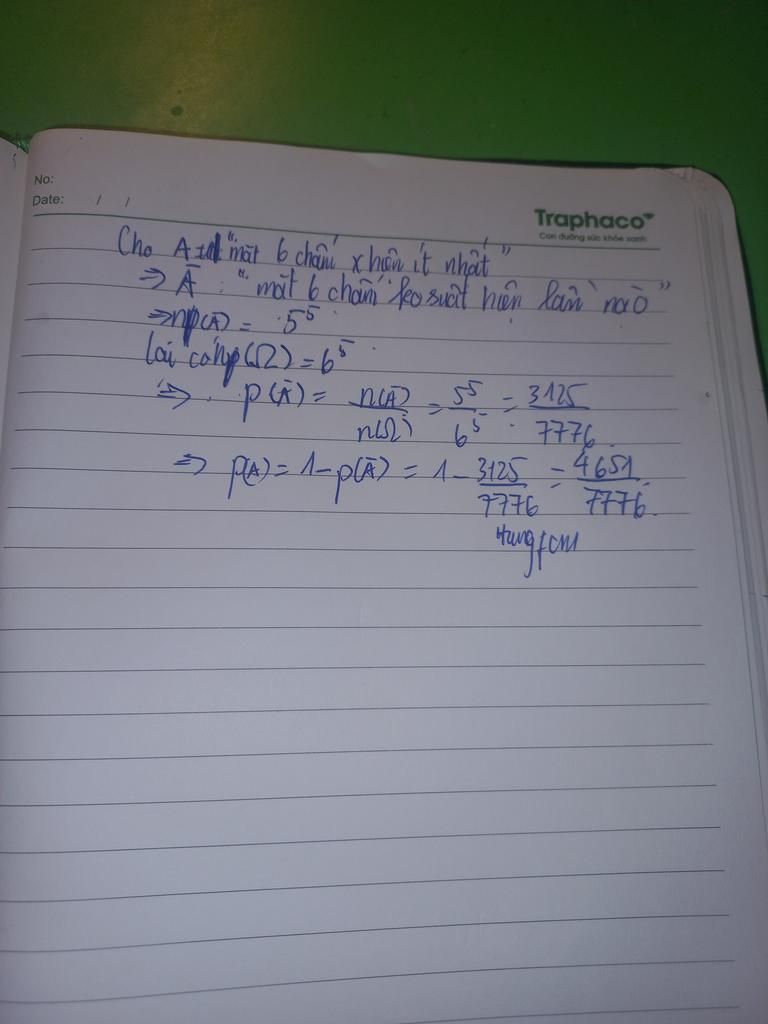 No:
Date: / /
Traphaco
Con đường sức khỏe xanh
Cho A "mặt 6 chấm x hiện ít nhất"
⇒ Ā : "mặt 6 chấm ko suất hiện lần nào"
⇒ n(Ā) = 5^5
lại có n(Ω) = 6^5
⇒ p(Ā) = n(Ā)/n(Ω) = 5^5/6^5 = 3125/7776
⇒ p(A) = 1 - p(Ā) = 1 - 3125/7776 = 4651/7776